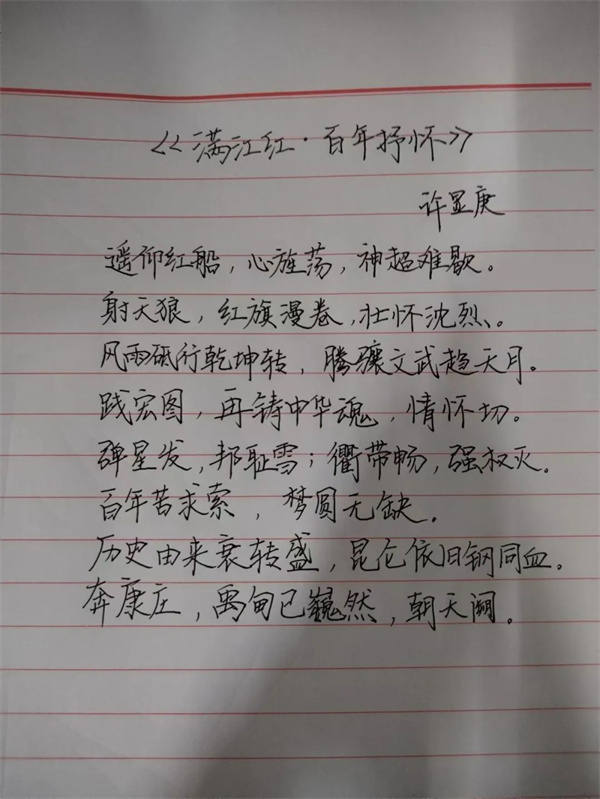 《满江红·百年抒怀》
许显庚
遥仰红船，心旌荡，神超难歇。
射天狼，红旗漫卷，壮怀沈烈。
风雨砥行乾坤转，腾骧文武趋天月。
践宏图，再铸中华魂，情怀切。
弹星发，邦耻雪；衢带畅，强权灭。
百年苦求索，梦圆无缺。
历史由来衰转盛，昆仑依旧钢同血。
奔康庄，禹甸已巍然，朝天阙。